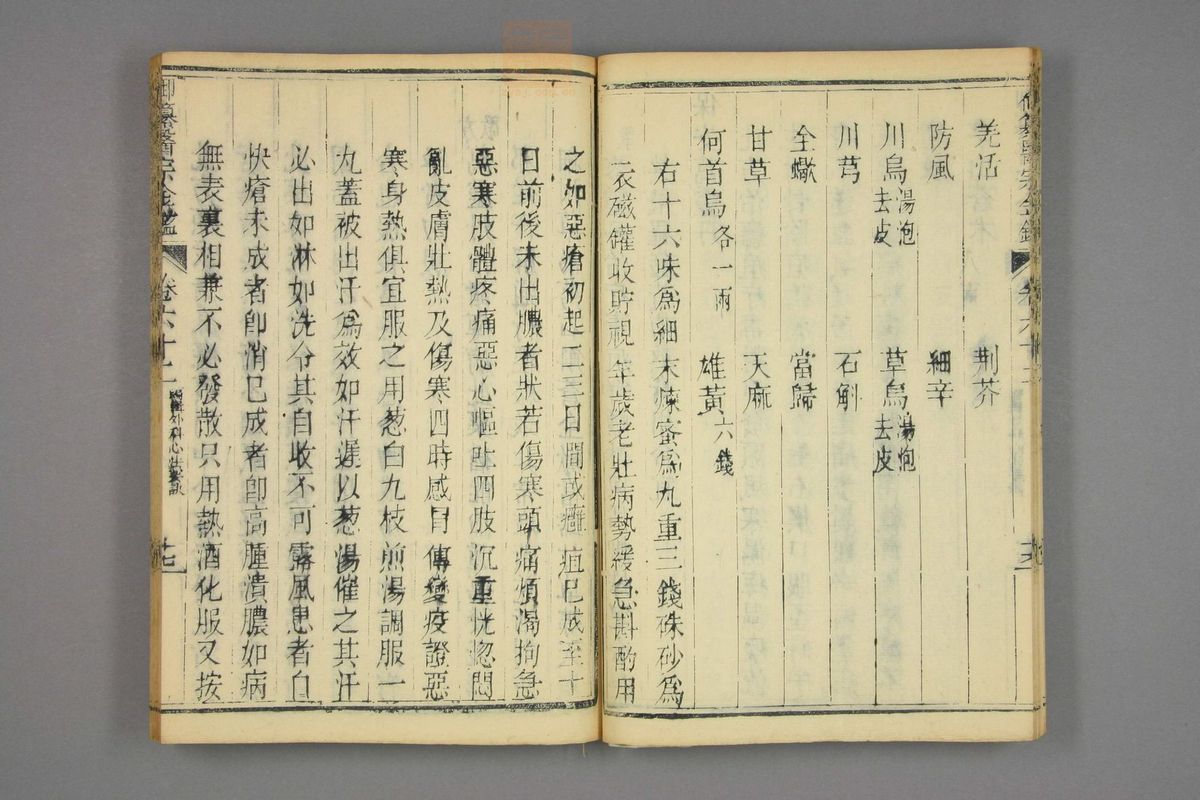 羌活 荆芥
防風 細辛
川烏湯泡去皮 草烏湯泡去皮
川芎 石斛
全蠍 當歸
甘草 天麻
何首烏各一兩 雄黃六錢
右十六味爲細末煉蜜爲丸重三錢硃砂爲
衣磁罐收貯視年歲老壯病勢緩急斟酌用
之如惡瘡初起二三日間或癰疽已成至十
日前後未出膿者狀若傷寒頭痛煩渴拘急
惡寒肢體疼痛惡心嘔吐四肢沉重恍惚悶
亂皮膚壯熱及傷寒四時感冒傳變疫證惡
寒身熱俱宜服之用葱白九枝煎湯調服一
丸蓋被出汗爲效如汗遲以葱湯催之其汗
必出如淋如洗令其自收不可露風患者自
快瘡未成者卽消已成者卽高腫潰膿如病
無表裏相兼不必發散只用熱酒化服又按
御纂醫宗金鑑 卷六十二 編輯外科心法要訣